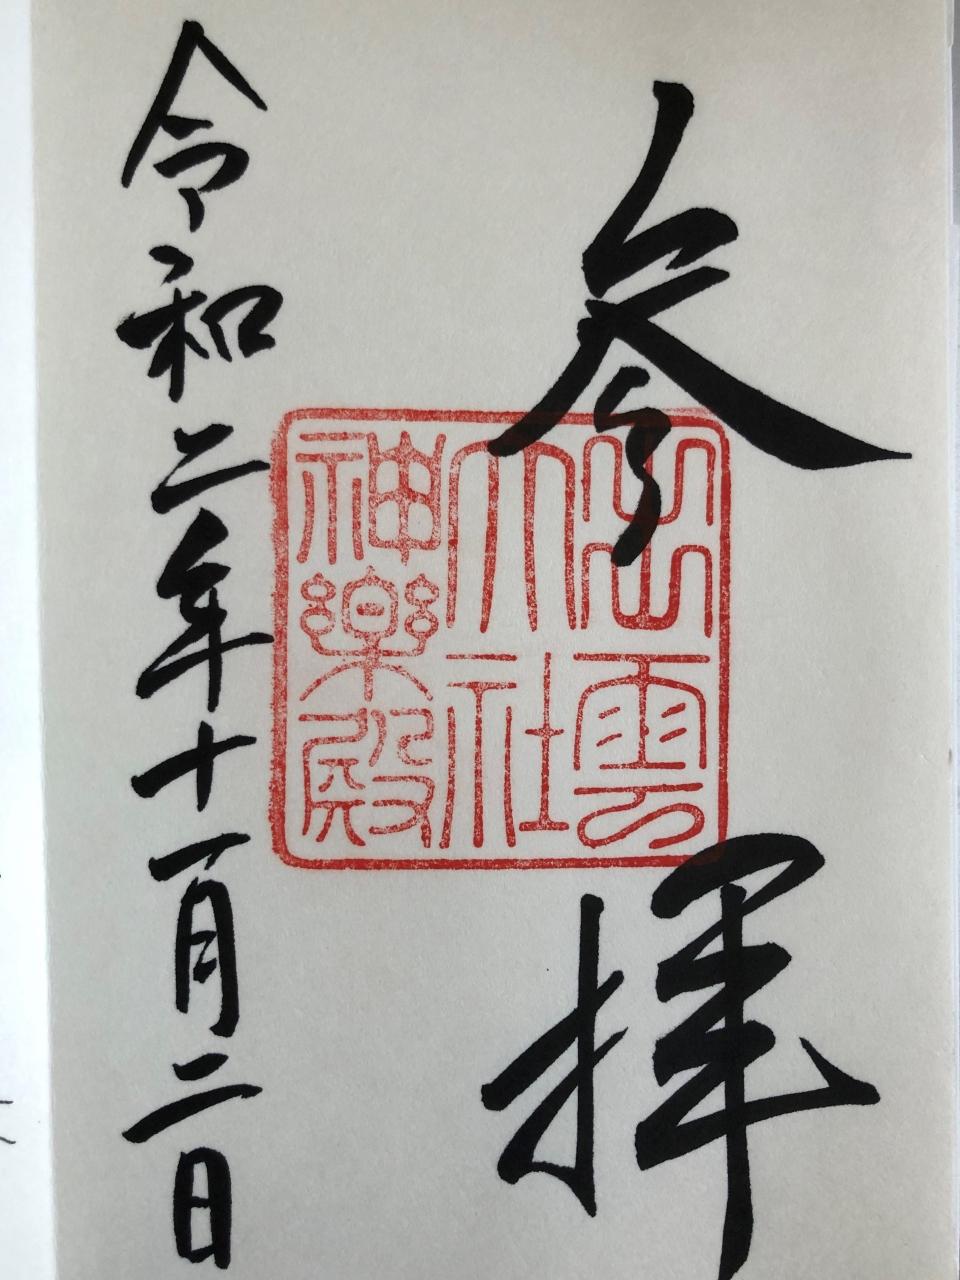 参拝
出雲
大社
神樂殿
令和二年十一月二日